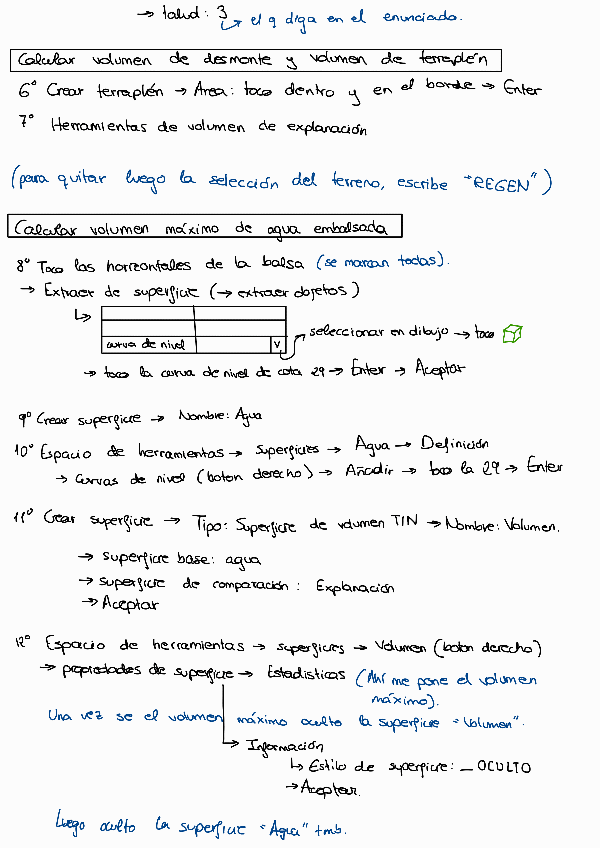 → talud: 3
↳ el q diga en el enunciado.
Calcular volumen de desmonte y volumen de terraplén
6º Crear terraplén → Area: toco dentro y en el borde → Enter
7º Herramientas de volumen de explanación
(para quitar luego la selección del terreno, escribe "REGEN")
Calcular volumen máximo de agua embalsada
8º Toco las horizontales de la balsa (se marcan todas).
→ Extraer de superficie (→ extraer objetos)
↳
curva de nivel V → seleccionar en dibujo → toco
→ toco la curva de nivel de cota 29 → Enter → Aceptar
9º Crear superficie → Nombre: Agua
10º Espacio de herramientas → superficies → Agua → Definición
→ Curvas de nivel (boton derecho) → Añadir → toco la 29 → Enter
11º Crear superficie → Tipo: Superficie de volumen TIN → Nombre: Volumen.
→ superficie base: agua
→ superficie de comparación: Explanación
→ Aceptar
12º Espacio de herramientas → superficies → Volumen (boton derecho)
→ propiedades de superficie → Estadisticas (Ahí me pone el volumen
máximo).
Una vez se el volumen máximo oculto la superficie "Volumen".
→ Información
↳ Estilo de superficie: _ OCULTO
→ Aceptar.
Luego oculto la superficie "Agua" tmb.